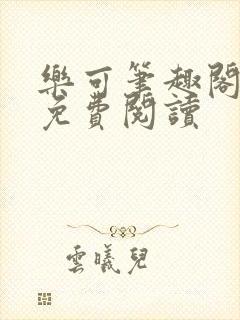 樂可筆趣閣
免費閱讀
雲曦兒